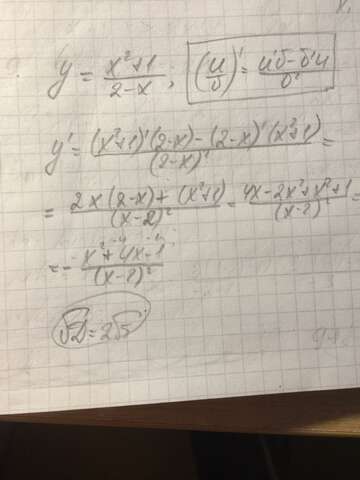 y = (x²+1)/(2-x), (и/б)' = (и'б-б'и)/б'
y' = ((x²+1)'(2-x)-(2-x)'(x²+1))/(2-x)' =
= (2x(2-x)+(x²+1))/(x-2)² = (4x-2x²+x²+1)/(x-2)² =
= -(x²-4x-1)/(x-2)²
√D=2√5